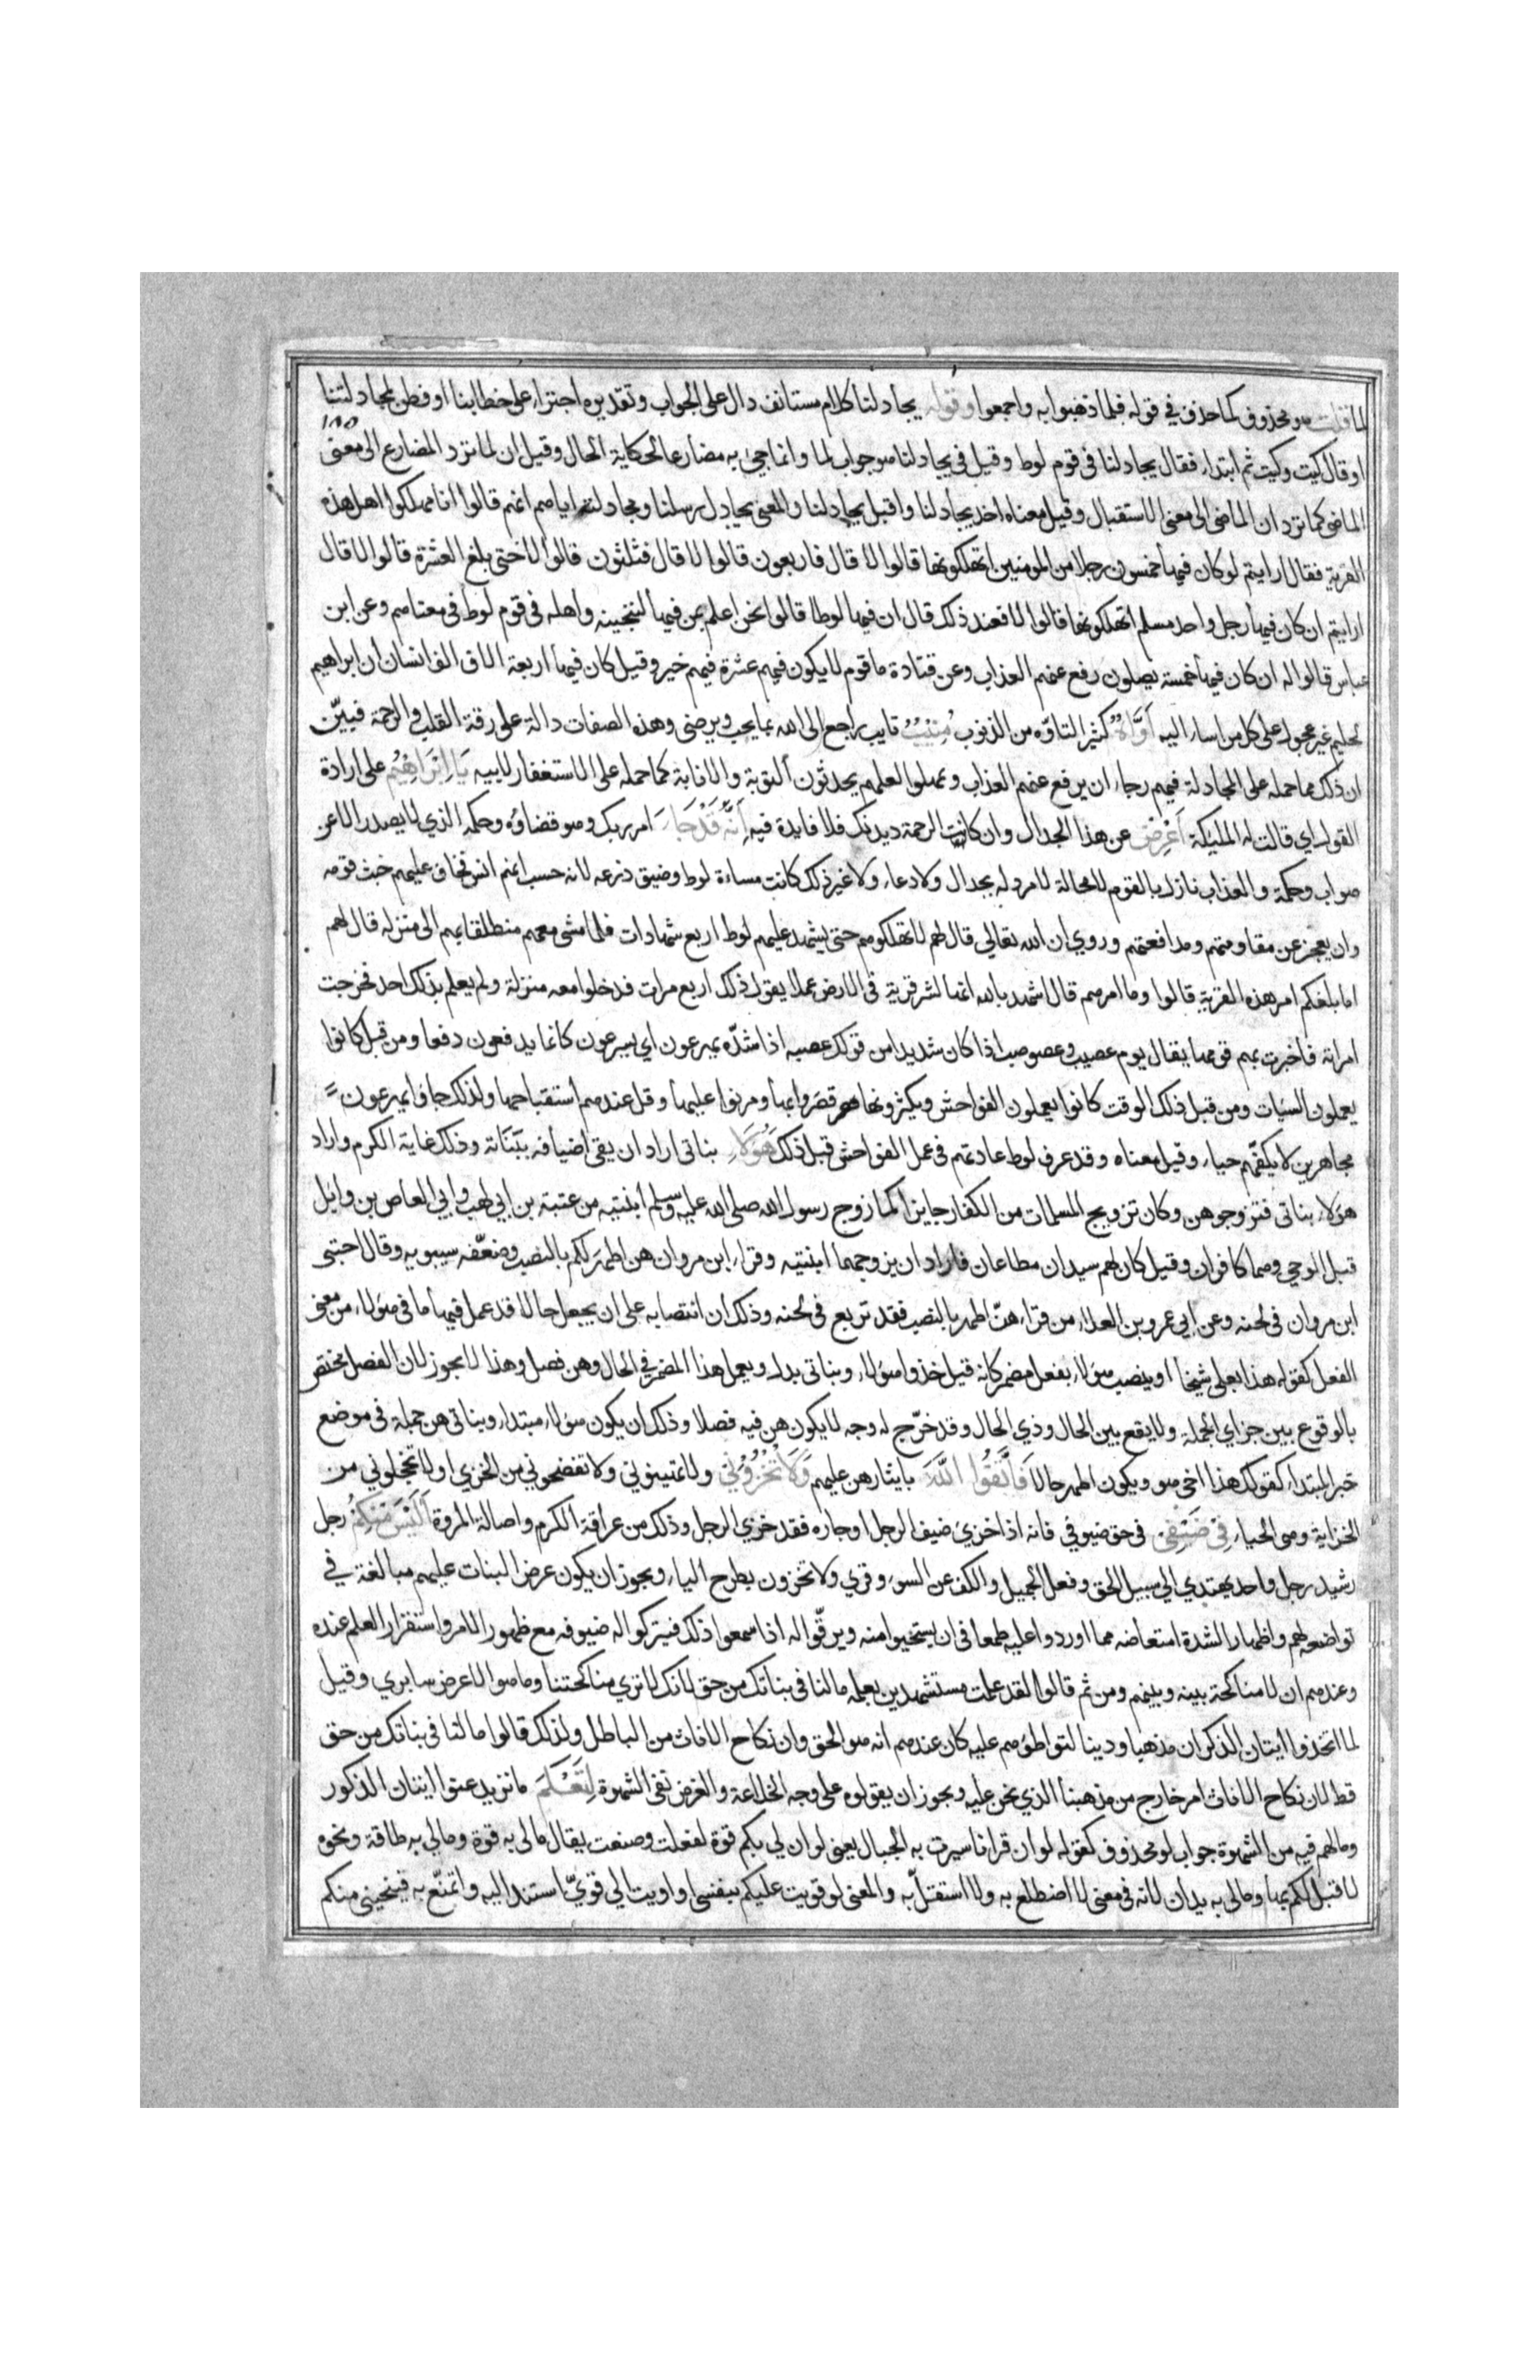 لما قلت هو محذوف كما حذف في قوله فلما ذهبوا به واجمعوا وقوله يجادلنا كلام مستانف دال على الجواب وتقديره اجترا على خطابنا او فطن لمجادلتنا
١٨٥
او قال كيت وكيت ثم ابتداء فقال يجادلنا في قوم لوط وقيل في يجادلنا هو جواب لما وانما جيء به مضارعا لحكاية الحال وقيل ان لما ترد المضارع الى معنى
الماضي كما ترد ان الماضي الى معنى الاستقبال وقيل معناه اخذ يجادلنا واقبل يجادلنا والمعنى يجادل رسلنا ومجادلته اياهم انهم قالوا انا مهلكوا اهل هذه
القرية فقال ارايتم لو كان فيها خمسون رجلا من المومنين اتهلكونها قالوا لا قال فاربعون قالوا لا قال فثلثون قالوا لا حتى بلغ العشرة قالوا لا قال
ارايتم ان كان فيها رجل واحد مسلم اتهلكونها قالوا لا فعند ذلك قال ان فيها لوطا قالوا نحن اعلم بمن فيها لننجينه واهله في قوم لوط في معناهم وعن ابن
عباس قالوا له ان كان فيها خمسة يصلون رفع عنهم العذاب وعن قتادة ما قوم لا يكون فيهم عشرة فيهم خير وقيل كان فيها اربعة الاف الف انسان ان ابراهيم
لحليم غير عجول على كل من اساء اليه أَوَّاهٌ كثير التاوّه من الذنوب مُنِيْبٌ تايب راجع الى الله بما يحب ويرضى وهذه الصفات دالة على رقة القلب والرحمة فبيّن
ان ذلك مما حمله على المجادلة فيهم رجاء ان يرفع عنهم العذاب ويمهلوا لعلهم يحدثون التوبة والانابة كما حمله على الاستغفار لابيه يَا اِبْرَاهِيْمُ على ارادة
القول اي قالت له المليكة أَعْرِضْ عن هذا الجدال وان كانت الرحمة ديدنك فلا فايدة فيه إِنَّهُ قَدْ جَاءَ امر ربك وهو قضاؤه وحكمه الذي لا يصدر الا عن
صواب وحكمة والعذاب نازل بالقوم لا محالة لا مرد له بجدال ولا دعاء ولا غير ذلك كانت مساءة لوط وضيق ذرعه لانه حسب انهم انس فخاف عليهم خبث قومه
وان يعجز عن مقاومتهم ومدافعتهم وروي ان الله تعالى قال لهم لا تهلكوهم حتى يشهد عليهم لوط اربع شهادات فلما مشى معهم منطلقا بهم الى منزله قال لهم
اما بلغكم امر هذه القرية قالوا وما امرهم قال اشهد بالله انها لشر قرية في الارض عملا يقول ذلك اربع مرات فدخلوا معه منزلة ولم يعلم بذلك احد فخرجت
امراته فاخبرت بهم قومها يقال يوم عصيب وعصوصب اذا كان شديدا من قولك عصبه اذا شدّه يهرعون اي يسرعون كانما يدفعون دفعا ومن قبل كانوا
يعملون السيات ومن قبل ذلك الوقت كانوا يعملون الفواحش ويكثرونها فضروا بها ومرنوا عليها وقل عندهم استقباحها ولذلك جاؤا يهرعون
مجاهرين لا يكفّهم حياء وقيل معناه وقد عرف لوط عادتهم في عمل الفواحش قبل ذلك هَؤُلَاءِ بناتي اراد ان يقي اضيافه ببَنَاته وذلك غاية الكرم واراد
هؤلاء بناتي فتزوجوهن وكان تزويج المسلمات من الكفار جايزا كما زوج رسول الله صلى الله عليه وسلم ابنتيه من عتبة بن ابي لهب وابي العاص بن وايل
قبل الوحي وهما كافران وقيل كان لهم سيدان مطاعان فاراد ان يزوجهما ابنتيه وقراء ابن مروان هن اطهرَ لكم بالنصب وضعّفه سيبويه وقال احتبى
ابن مروان في لحنه وعن ابي عمرو بن العلاء من قراء هنّ اطهر بالنصب فقد تربع في لحنه وذلك ان انتصابه على ان يجعل حالا قد عمل فيها ما في هؤلاء من معنى
الفعل كقوله هذا بعلي شيخا او ينصب هؤلاء بفعل مضمر كانه قيل خذوا هؤلاء وبناتي بدل ويعمل هذا المضمر في الحال وهن فصل وهذا لا يجوز لان الفصل مختص
بالوقوع بين جزاي الجملة ولا يقع بين الحال وذي الحال وقد خرّج له وجه لا يكون هن فيه فصلا وذلك ان يكون هؤلاء مبتداء وبناتي هن جملة في موضع
خبر المبتداء كقولك هذا اخي هو ويكون اطهر حالا فَاتَّقُوا اللَّهَ بايثارهن عليهم وَلَا تُخْزُوْنِيْ ولا تهينوني ولا تفضحوني من الخزي او لا تخجلوني من
الخزاية وهي الحياء فِيْ ضَيْفِيْ في حق ضيوفي فانه اذا خزي ضيف الرجل او جاره فقد خزي الرجل وذلك من عراقة الكرم واصالة المروة أَلَيْسَ مِنْكُمْ رجل
رشيد رجل واحد يهتدي الى سبيل الحق وفعل الجميل والكف عن السوء وقري ولا تخزون بطرح الياء ويجوز ان يكون عرض البنات عليهم مبالغة في
تواضعه لهم واظهار الشدة امتعاضه مما اوردوا عليه طمعا في ان يستحيوا منه ويرقّوا له اذا سمعوا ذلك فيتركوا له ضيوفه مع ظهور الامر واستقرار العلم عنده
وعندهم ان لا مناكحة بينه وبينهم ومن ثم قالوا لقد علمت مستشهدين بعلمه مالنا في بناتك من حق لانك لا ترى مناكحتنا وما هو الا عرض سابري وقيل
لما اتخذوا ايتان الذكران مذهبا ودينا لتواطؤهم عليه كان عندهم انه هو الحق وان نكاح الاناث من الباطل ولذلك قالوا مالنا في بناتك من حق
قط لان نكاح الاناث امر خارج من مذهبنا الذي نحن عليه ويجوز ان يقولوه على وجه الخلاعة والغرض نفي الشهوة لَتَعْلَمُ ما نريد عنوا ايتان الذكور
ومالهم فيه من الشهوة جواب لو محذوف كقوله لو ان قرانا سيرت به الجبال يعني لو ان لي بكم قوة لفعلت وصنعت يقال مالي به قوة ومالي به طاقة ونحوه
لا قبل لكم بها ومالي به يدان لانه في معنى لا اضطلع به ولا استقلّ به والمعنى لو قويت عليكم بنفسي او اويت الى قويّ استند اليه واتمنّع به فينجيني منكم